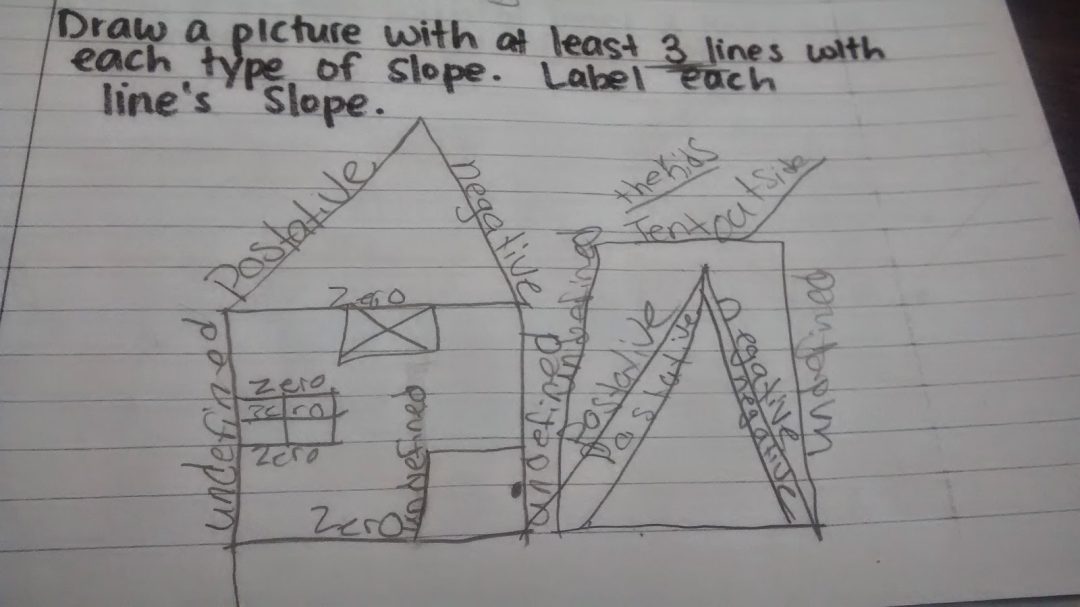 Draw a picture with at least 3 lines with
each type of slope. Label each
line's Slope.
the Kids
Tent outside
Postative
negative
Zero
undefined
undefined
undefined
undefined
Zero
Zero
Zero
undefined
Zero
Postative
Postative
negative
negative